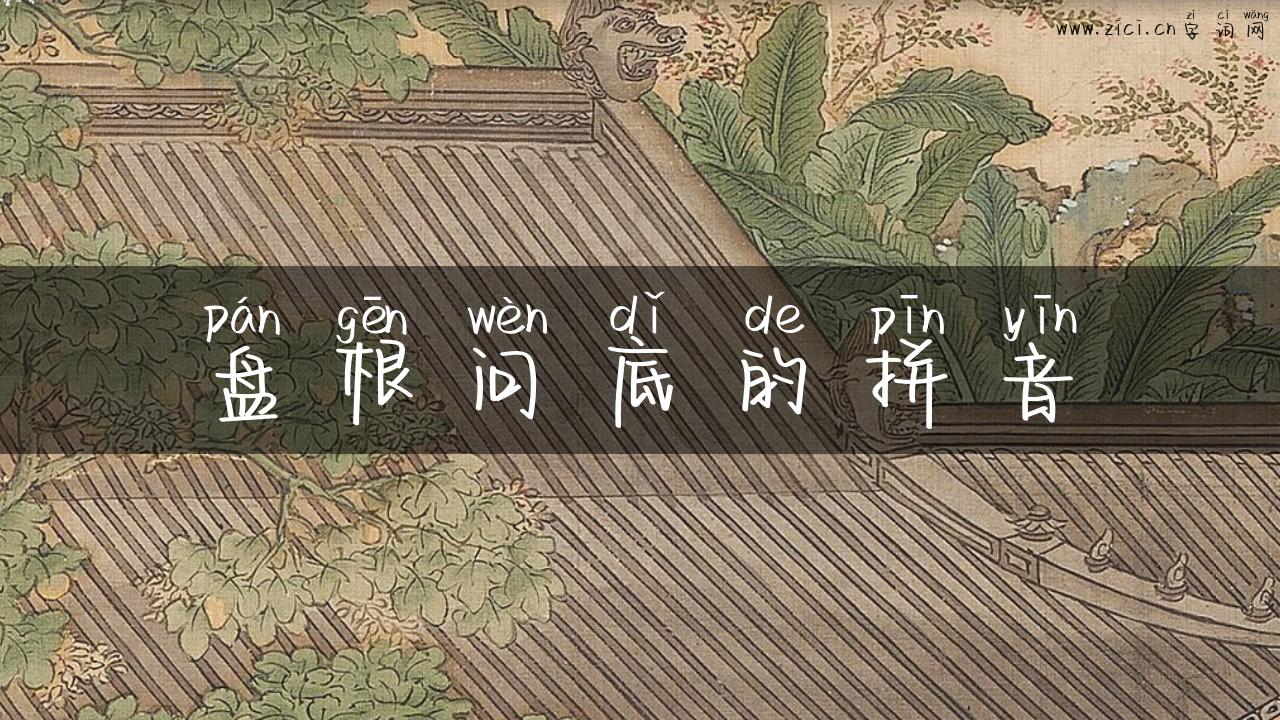 zì cí wǎng
www.zici.cn 字词网
pán gēn wèn dǐ de pīn yīn
盘根问底的拼音